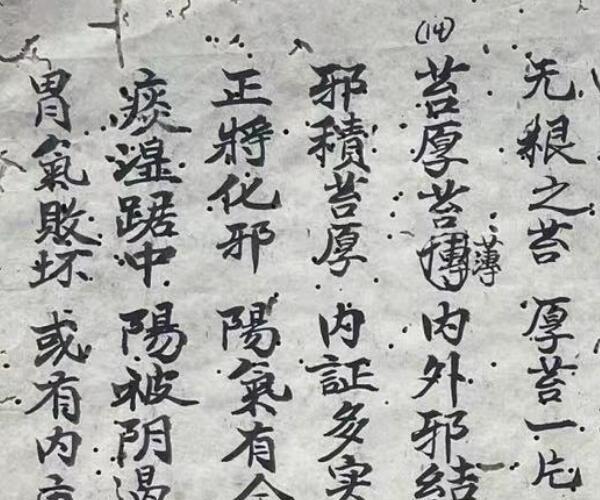 无根之苔 厚苔一片
(14)
苔厚苔博薄 内外邪結
邪積苔厚 内証多实
正將化邪 陽氣有
痰湿踞中 陽被阴
胃氣敗坏 或有内